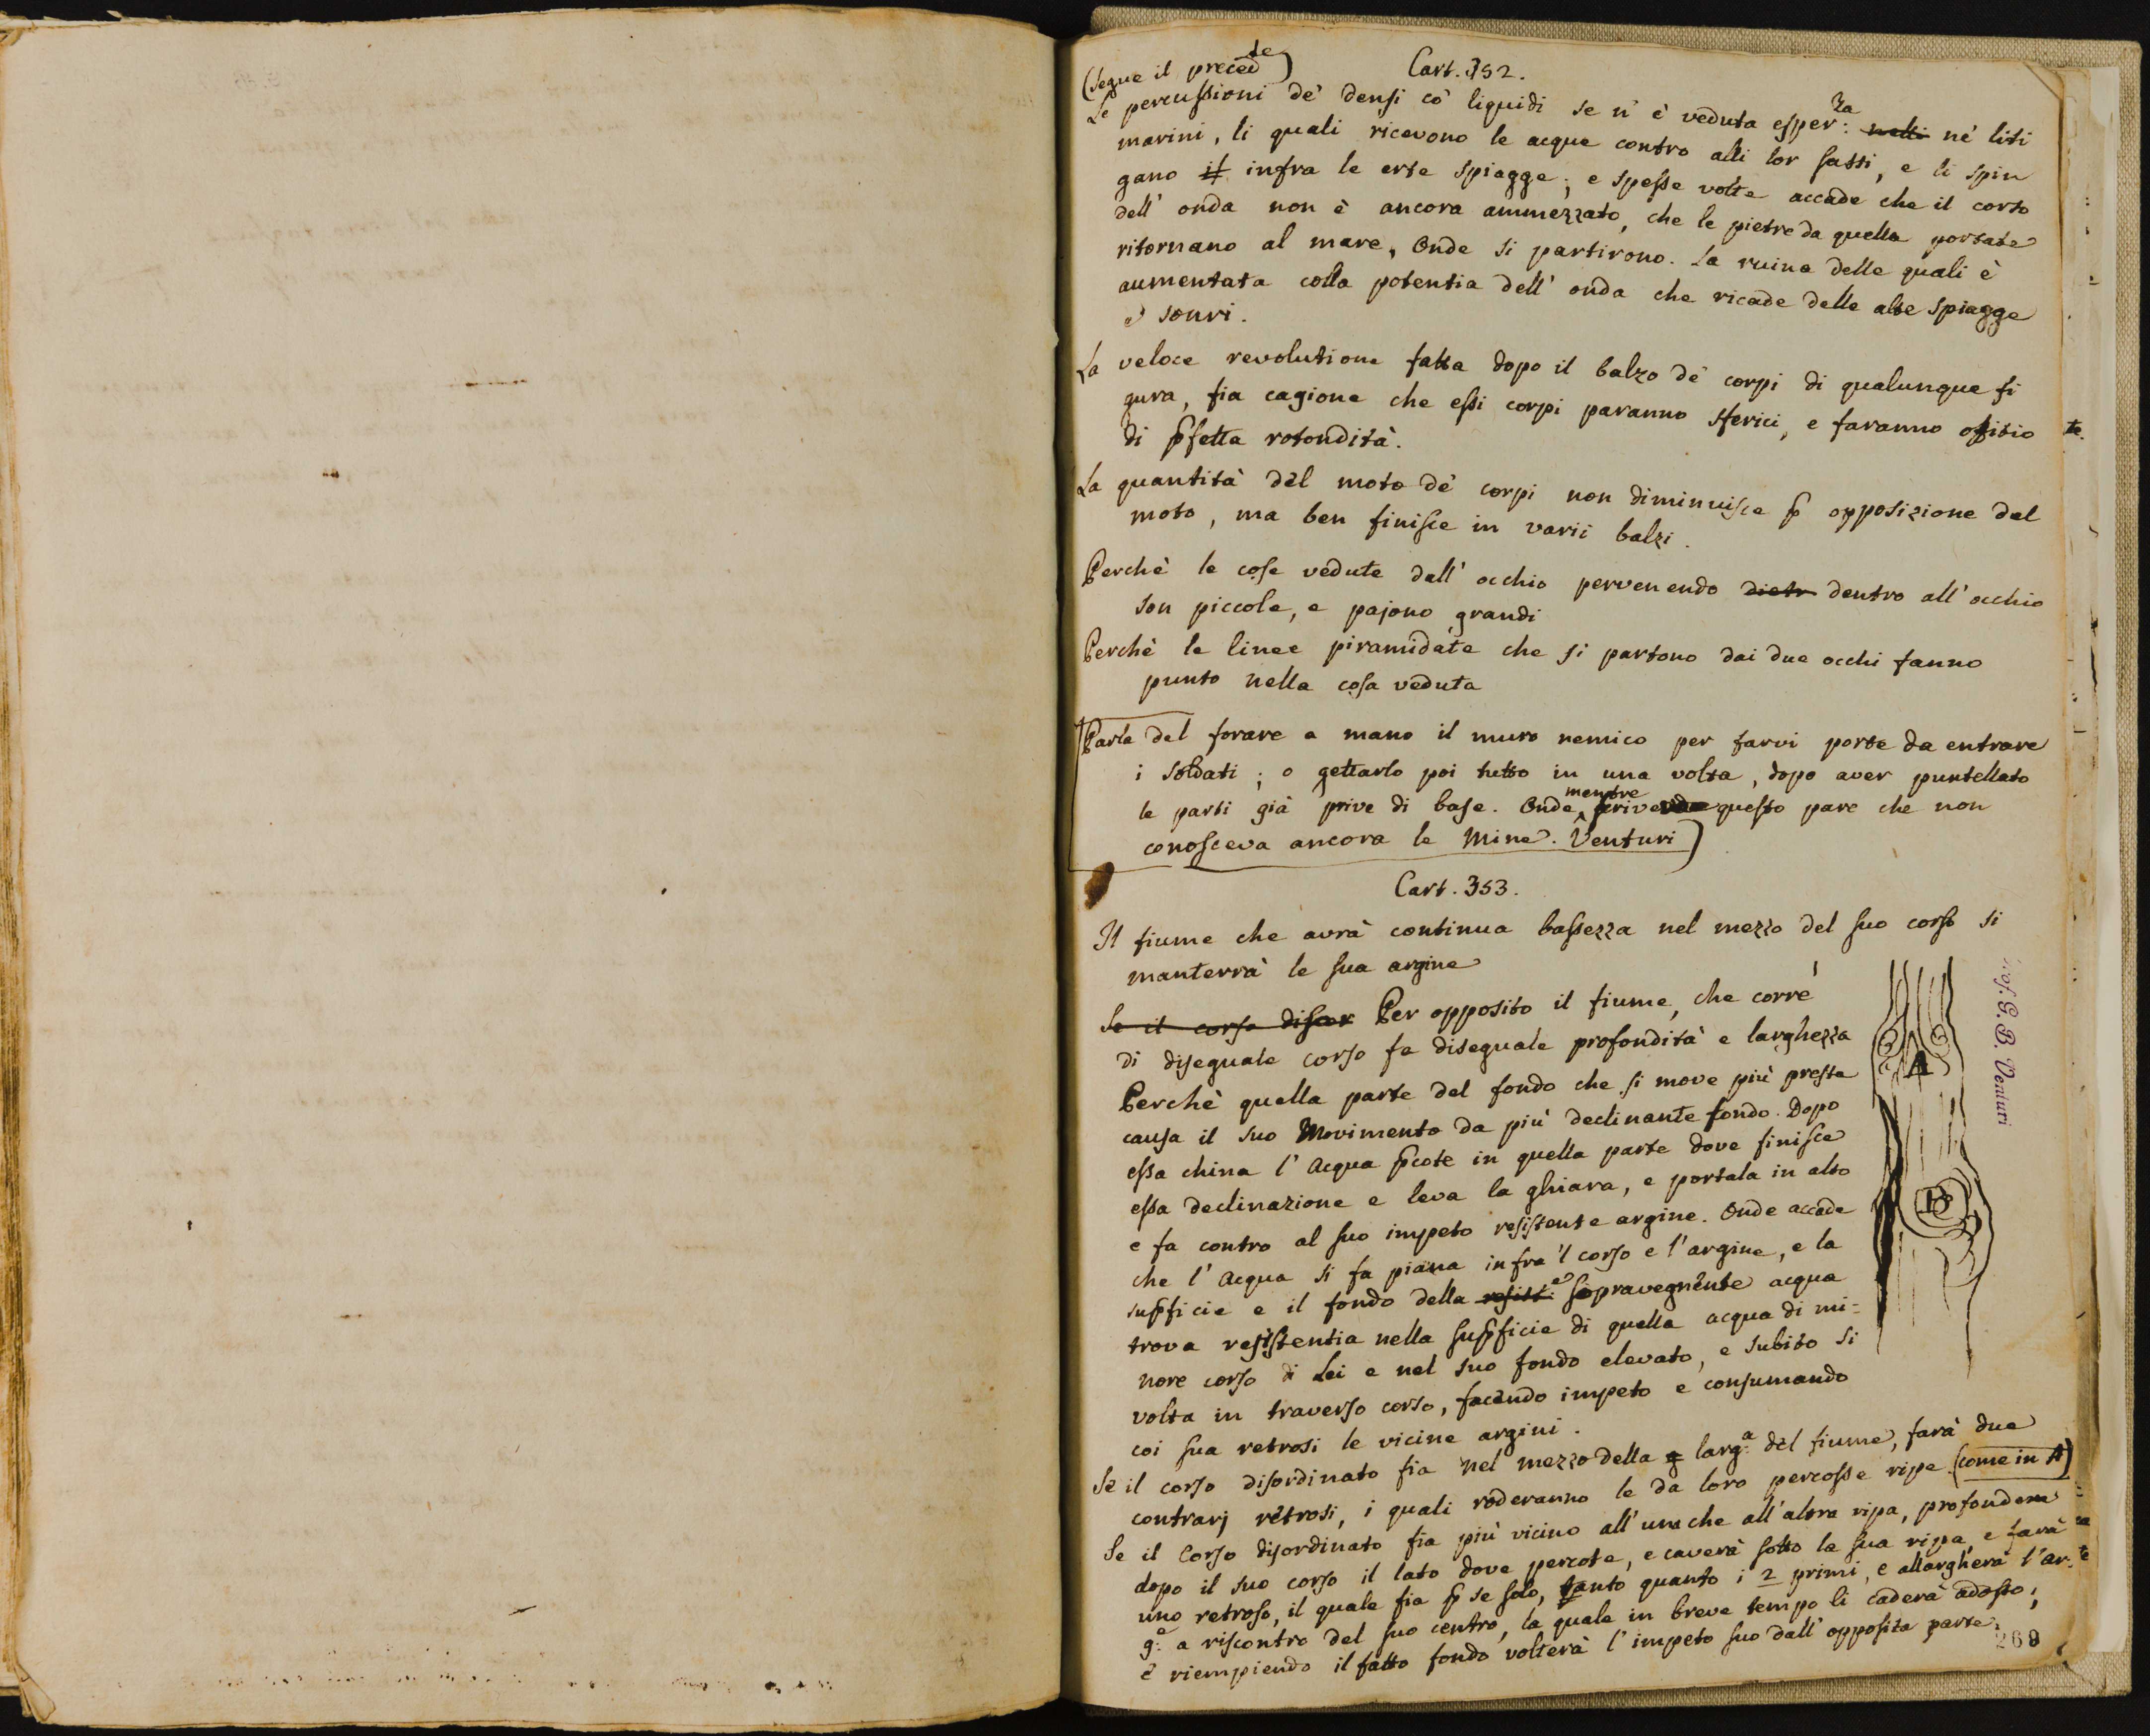 (Segue il preced.te)
Cart. 352.
Le percussioni de' densi co' liquidi se n'è veduta esper.za nelli ne' liti
marini, li quali ricevono le acque contro alli lor sassi, e li spin
gano it infra le erte spiagge; e spesse volte accade che il corso
dell' onda non è ancora ammezzato, che le pietre da quella portate
ritornano al mare, Onde si partirono. La ruina delle quali è
aumentata colla potentia dell' onda che ricade delle alte spiagge
La veloce revolutione fatta dopo il balzo de' corpi di qualunque fi
gura, fia cagione che essi corpi paranno sferici, e faranno ofitio
di p̱fetta rotondità.
La quantità del moto de' corpi non diminuisce p̱ opposizione del
moto, ma ben finisce in varii balzi.
Perchè le cose vedute dall' occhio pervenendo dietr dentro all' occhio
son piccole, e pajono grandi
Perchè le linee piramidate che si partono dai due occhi fanno
punto nella cosa veduta
Parla del forare a mano il muro nemico per farvi porte da entrare
i soldati; o gettarlo poi tutto in una volta, dopo aver puntellato
le parti già prive di base. Onde, mentre scrive questo pare che non
conosceva ancora le Mine. Venturi)
Cart. 353.
Il fiume che avrà continua bassezza nel mezzo del suo corso si
manterrà le sua argine
Se il corso discor Per opposito il fiume, che corre
di diseguale corso fa diseguale profondità e larghezza
Perchè quella parte del fondo che si move più presta
causa il suo Movimento da più declinante fondo. Dopo
essa china l' Acqua p̱cote in quella parte dove finisce
essa declinazione e leva la ghiara, e portala in alto
e fa contro al suo impeto resistente argine. Onde accade
che l' Acqua si fa piana infra 'l corso e l' argine, e la
sup̱ficie e il fondo della sopravegnente acqua
trova resistentia nella sup̱ficie di quella acqua di mi=
nore corso di Lei e nel suo fondo elevato, e subito si
volta in traverso corso, facendo impeto e consumando
coi sua retrosi le vicine argini.
Se il corso disordinato fia nel mezzo della larg.a del fiume, farà due
contrarj retrosi, i quali roderanno le da loro percosse ripe (come in A)
Se il Corso disordinato fia più vicino all' una che all' altra ripa, profondera
dopo il suo corso il lato dove percote, e caverà sotto la sua ripa, e farà
uno retroso, il quale fia p̱ se solo, tanto quanto i 2 primi, e allargherà l' ar-
g.e a riscontro del suo centro, la quale in breve tempo li caderà adosso;
e riempiendo il fatto fondo volterà l' impeto suo dall' opposita parte.
A
B
Prof. G. B. Venturi
269